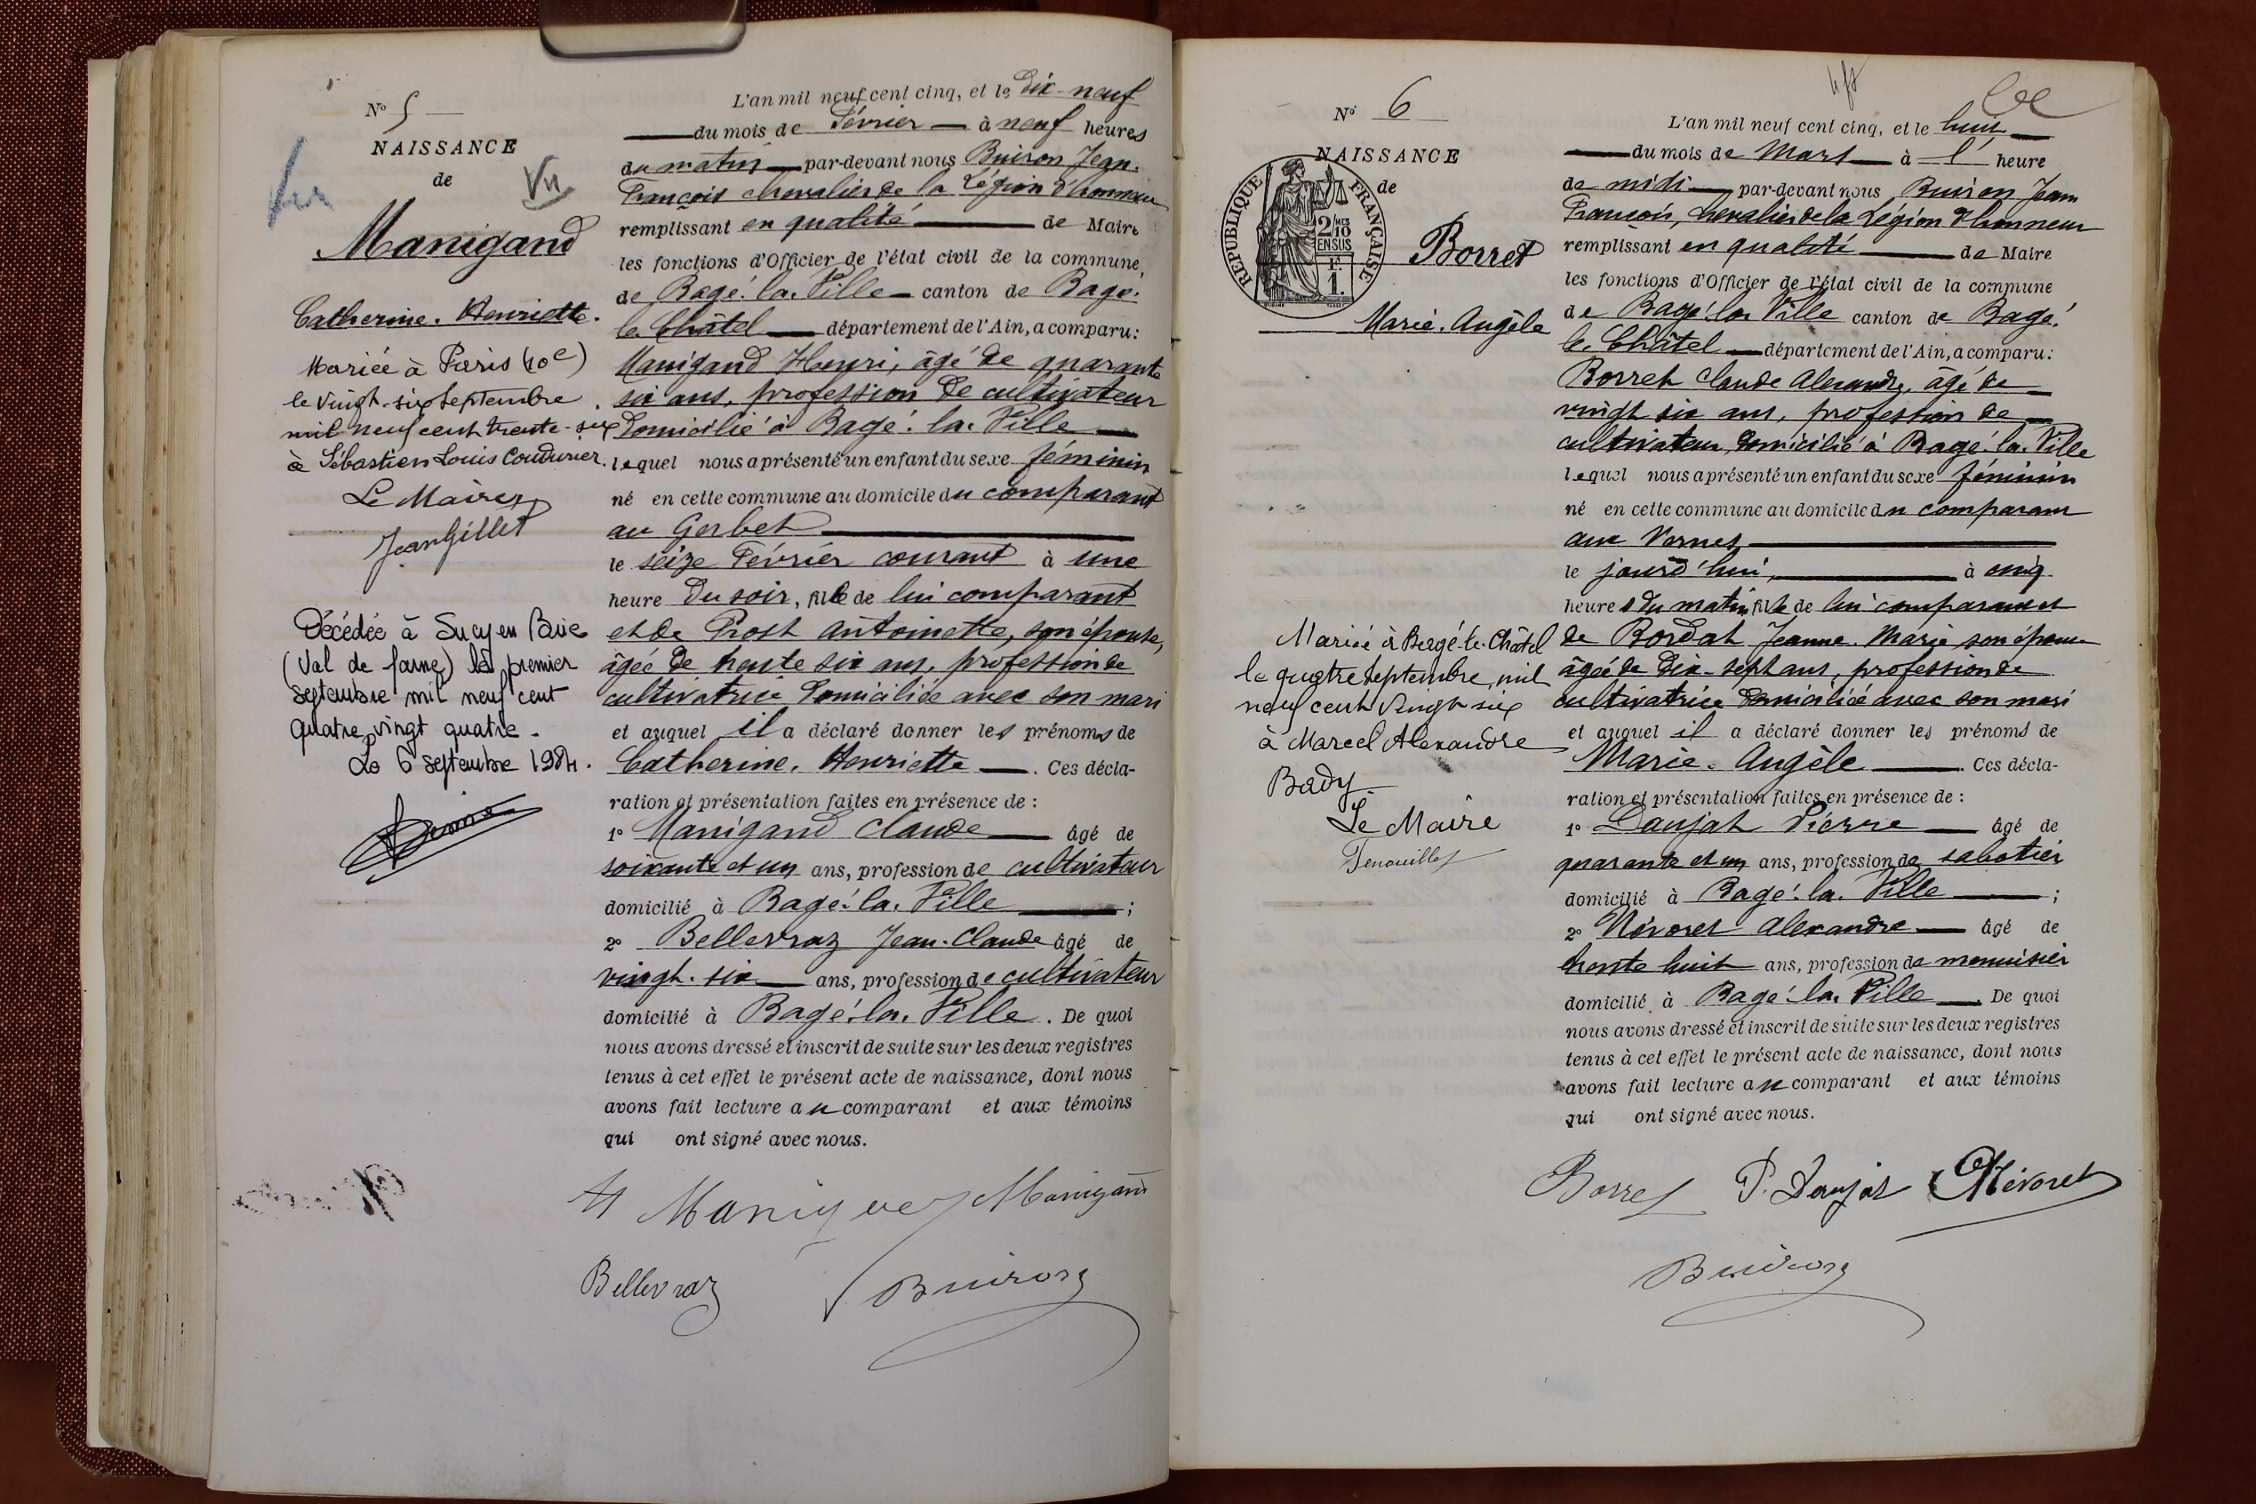 N° 5
NAISSANCE
de
Vu
Manigand
Catherine. Henriette.
Mariée à Paris (10e)
le vingt-six septembre
mil neuf cent trente-six
à Sébastien Louis Coudurier.
Le Maire,
Jean Gillet
Décédée à Sucy en Brie
(Val de Marne) le premier
septembre mil neuf cent
quatre vingt quatre.
Le 6 septembre 1984.
L'an mil neuf cent cinq, et le dix-neuf
du mois de Février à neuf heures
du matin par-devant nous Buiron Jean.
François chevalier de la Légion d'honneur
remplissant en qualité de Maire
les fonctions d'Officier de l'état civil de la commune
de Bagé. la. Ville canton de Bagé.
le. Châtel département de l'Ain, a comparu:
Manigand Henri, âgé de quarante
six ans, profession de cultivateur
domicilié à Bagé. la. Ville
lequel nous a présenté un enfant du sexe féminin
né en cette commune au domicile du comparant
au Gerbet
le seize Février courant à une
heure du soir, fille de lui comparant
et de Prost Antoinette, son épouse,
âgée de trente six ans, profession de
cultivatrice domiciliée avec son mari
et auquel il a déclaré donner les prénoms de
Catherine. Henriette. Ces décla-
ration et présentation faites en présence de :
1° Manigand Claude âgé de
soixante et un ans, profession de cultivateur
domicilié à Bagé. la. Ville ;
2° Bellevraz Jean-Claude âgé de
vingt. six ans, profession de cultivateur
domicilié à Bagé. la. Ville. De quoi
nous avons dressé et inscrit de suite sur les deux registres
tenus à cet effet le présent acte de naissance, dont nous
avons fait lecture au comparant et aux témoins
qui ont signé avec nous.
Manigand
Bellevraz Buiron
N° 6
NAISSANCE
de
REPUBLIQUE FRANÇAISE
2/10 MES
EN SUS
1 F.
Borret
Marie. Angèle
Mariée à Bagé-le-Châtel
le quatre septembre mil
neuf cent vingt six
à Marcel Alexandre
Bady
Le Maire
Fenouillet
L'an mil neuf cent cinq, et le huit
du mois de Mars à l' heure
de midi par-devant nous Buiron Jean
François, chevalier de la Légion d'honneur
remplissant en qualité de Maire
les fonctions d'Officier de l'état civil de la commune
de Bagé. la. Ville canton de Bagé.
le. Châtel département de l'Ain, a comparu:
Borret Claude Alexandre, âgé de
vingt six ans, profession de
cultivateur, domicilié à Bagé. la. Ville
lequel nous a présenté un enfant du sexe féminin
né en cette commune au domicile du comparant
aux Vernes
le jourd'hui, à cinq
heures du matin fille de lui comparant et
de Bordat Jeanne. Marie son épouse
âgée de dix-sept ans, profession de
cultivatrice domiciliée avec son mari
et auquel il a déclaré donner les prénoms de
Marie. Angèle. Ces décla-
ration et présentation faites en présence de :
1° Daujat Pierre âgé de
quarante et un ans, profession de sabotier
domicilié à Bagé. la. Ville ;
2° Névoret Alexandre âgé de
trente huit ans, profession de menuisier
domicilié à Bagé. la. Ville. De quoi
nous avons dressé et inscrit de suite sur les deux registres
tenus à cet effet le présent acte de naissance, dont nous
avons fait lecture au comparant et aux témoins
qui ont signé avec nous.
Borret P. Daujat Névoret
Buiron